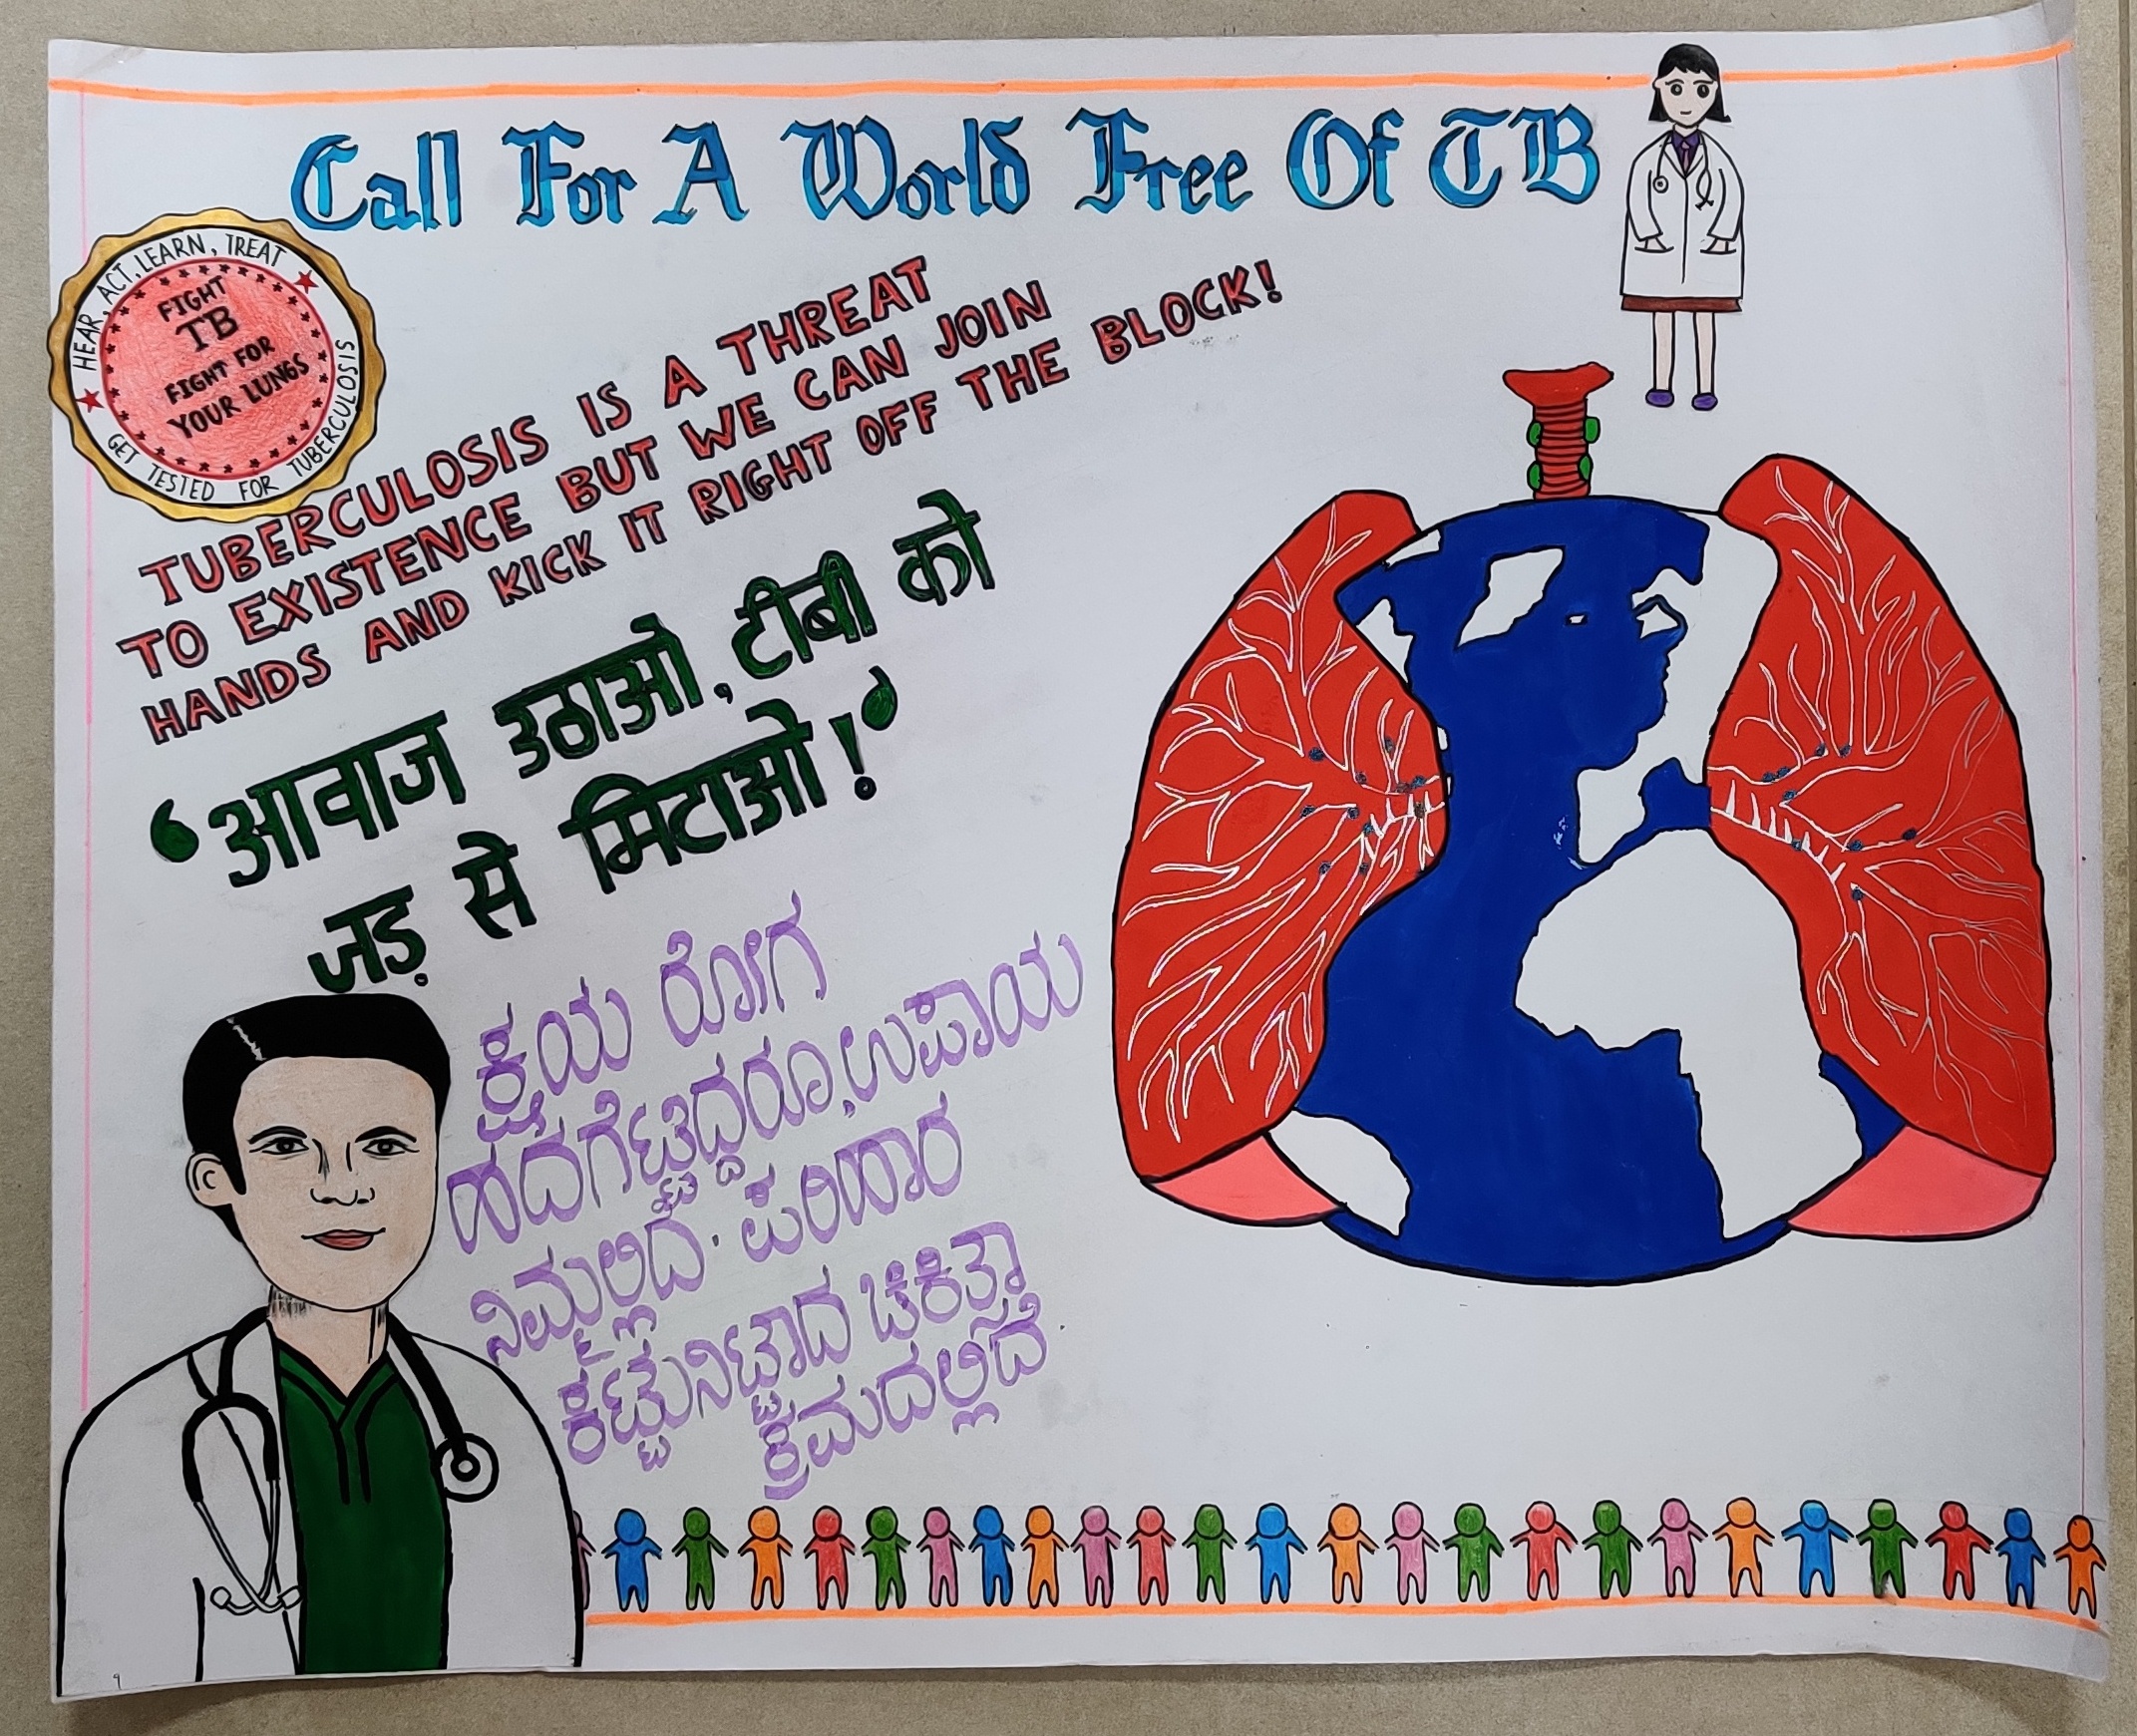 Call For A World Free Of TB
HEAR, ACT, LEARN, TREAT
FIGHT
TB
FIGHT FOR
YOUR LUNGS
GET TESTED FOR TUBERCULOSIS
TUBERCULOSIS IS A THREAT
TO EXISTENCE BUT WE CAN JOIN
HANDS AND KICK IT RIGHT OFF THE BLOCK!
'आवाज उठाओ, टीबी को
जड़ से मिटाओ!'
ಕ್ಷಯ ರೋಗ
ಹದಗೆಟ್ಟಿದ್ದರೂ, ಉಪಾಯ
ನಿಮ್ಮಲ್ಲಿದೆ. ಪರಿಹಾರ
ಕಟ್ಟುನಿಟ್ಟಾದ ಚಿಕಿತ್ಸಾ
ಕ್ರಮದಲ್ಲಿದೆ